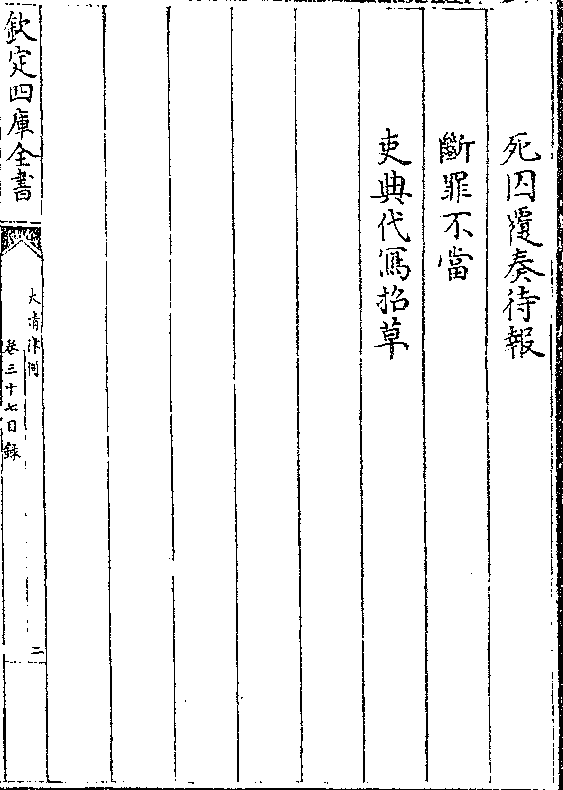 死囚覆奏待報
斷罪不當
吏典代寫招草
欽定四庫全書
大清律例
卷三十七目錄
二